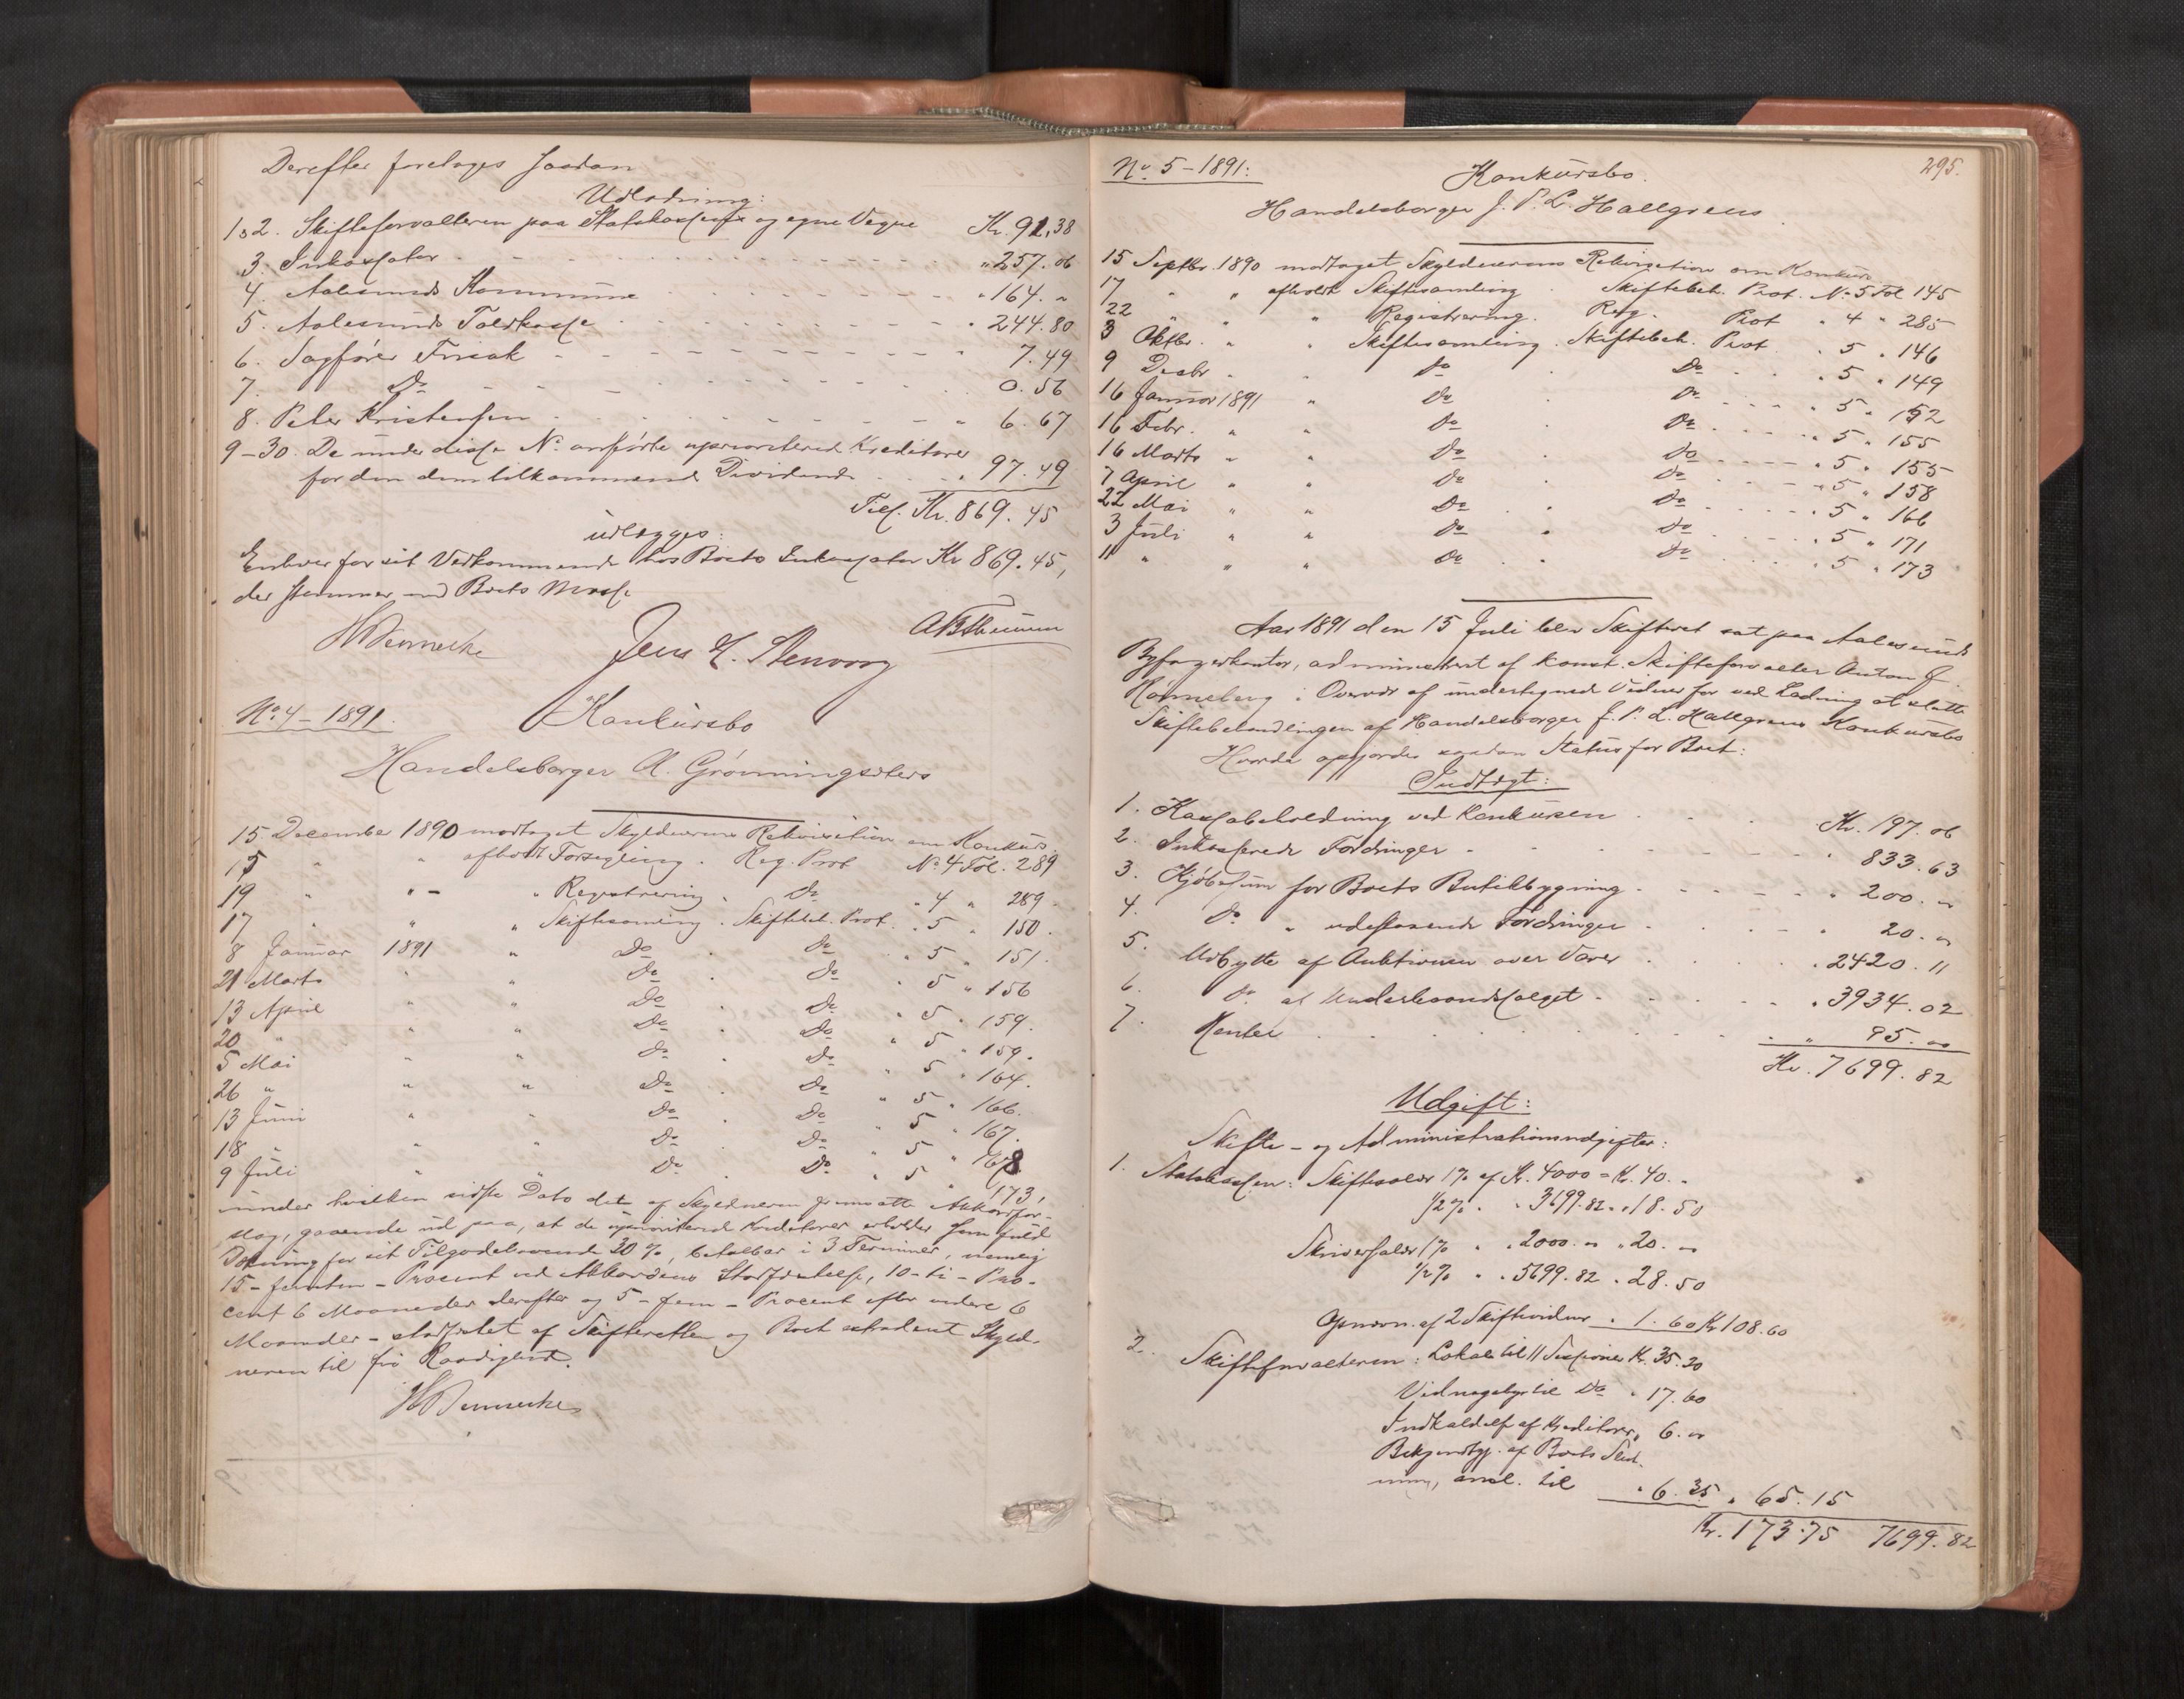 Derefter foretoges saadan
Udlodning:
1 & 2. Skifteforvalteren paa Statskassens og egne Vegne Kr. 91,38
3. Inkassator " 257.06
4. Aalesunds Kommune " 164. "
5. Aalesunds Toldkasse " 244.80
6. Sagfører Frisak " 7.49
7. Do 0.56
8. Peter Kristensen " 6.67
9-30. De under disse No anførte uprioriterede Kreditorer
for den dem tilkommende Dividende " 97.49
Tils. Kr. 869.45
udlægges:
Enhver for sit Vedkommende hos Boets Inkassator Kr 869.45,
der stemmer med Boets Masse
HBennecke Jens L. Stenvaag
No. 4 - 1891. Konkursbo
Handelsborger A. Grønningsæters
15 December 1890 modtaget Skyldnerens Rekvisition om Konkurs.
15 " " afholdt Forsegling. Reg. Prot No 4 Fol. 289
19 " " - " Registrering. Do " 4 " 289.
17 " " " Skiftesamling. Skiftebeh. Prot. " 5 " 150.
8 Januar 1891 " Do Do " 5 " 151.
21 Marts " " Do Do " 5 " 156
13 April " " Do Do " 5 " 159.
20 " " " Do Do " 5 " 159.
5 Mai " " Do Do " 5 " 164.
26 " " " Do Do " 5 " 166.
13 Juni " " Do Do " 5 " 167.
18 " " " Do Do " 5 " 168
9 Juli " " Do Do " 5 " 173,
under hvilken sidste Dato det af Skyldneren fremsatte Akkordfor-
slag, gaaende ud paa, at de uprioriterede Kreditorer erholder som fuld
Dækning for sit Tilgodehavende 30 %, betalbar i 3 Terminer, nemlig
15 - femten - Procent ved Akkordens Stadfæstelse, 10 - ti - Pro-
cent 6 Maaneder derefter og 5 - fem - Procent efter videre 6
Maaneder - stadfæstet af Skifteretten og Boet extraderet Skyld-
neren til fri Raadighed.
HBennecke
295.
No. 5 - 1891: Konkursbo.
Handelsborger J. P. L. Hallgrens
15 Septbr. 1890 modtaget Skyldnerens Rekvisition om Konkurs
17 " " afholdt Skiftesamling. Skiftebeh. Prot. No 5 Fol 145
22 " " " Registrering. Reg. Prot " 4 " 285
3 Oktbr. " " Skiftesamling. Skiftebeh. Prot " 5 " 146
9 Decbr " " Do Do " 5 " 149
16 Januar 1891 " Do Do " 5 " 152
16 Febr. " " Do Do " 5 " 155
16 Marts " " Do Do " 5 " 155
7 April " " Do Do " 5 " 158
22 Mai " " Do Do " 5 " 166
3 Juli " " Do Do " 5 " 171
11 " " " Do Do " 5 " 173
Aar 1891 den 15 Juli blev Skifteret sat paa Aalesunds
Byfogedkontor, administreret af konst. Skifteforvalter Anton J.
Rønneberg i Overvær af undertegnede Vidner for ved Lodning at slutte
Skiftebehandlingen af Handelsborger J. P. L. Hallgrens Konkursbo
Hvorda opgjordes saadan Status for Boet:
Indtægt:
1. Kassabeholdning ved Konkursen Kr. 197.06
2. Inkasserede Fordringer " 833.63
3. Kjøbesum for Boets Butikbygning " 200. "
4. Do " udestaaende Fordringer " 20. "
5. Udbytte af Auktionen over Varer " 2420.11
6. Do af Underhaandssalget " 3934.02
7. Renter " 95.00
Kr. 7699.82
Udgift:
Skifte- og Administrationsudgifter:
1. Statskassen: Skiftesalær 1% af Kr. 4000 = Kr. 40. "
1/2 % " " 3699.82 " " 18.50
Skriversalær 1% " " 2000. " " 20. "
1/2 % " " 5699.82 " 28.50
Opnævn. af 2 Skiftevidner " 1.60 Kr 108.60
2. Skifteforvalteren: Lokale til 11 Sessioner Kr. 35.20
Vidnegebyr til Do " 17.60
Indkaldelse af Kreditorer " 6. "
Bekjendtgj. af Boets Slut-
ning, ansl. til " 6.35 " 65.15
Kr. 173.75 7699.82